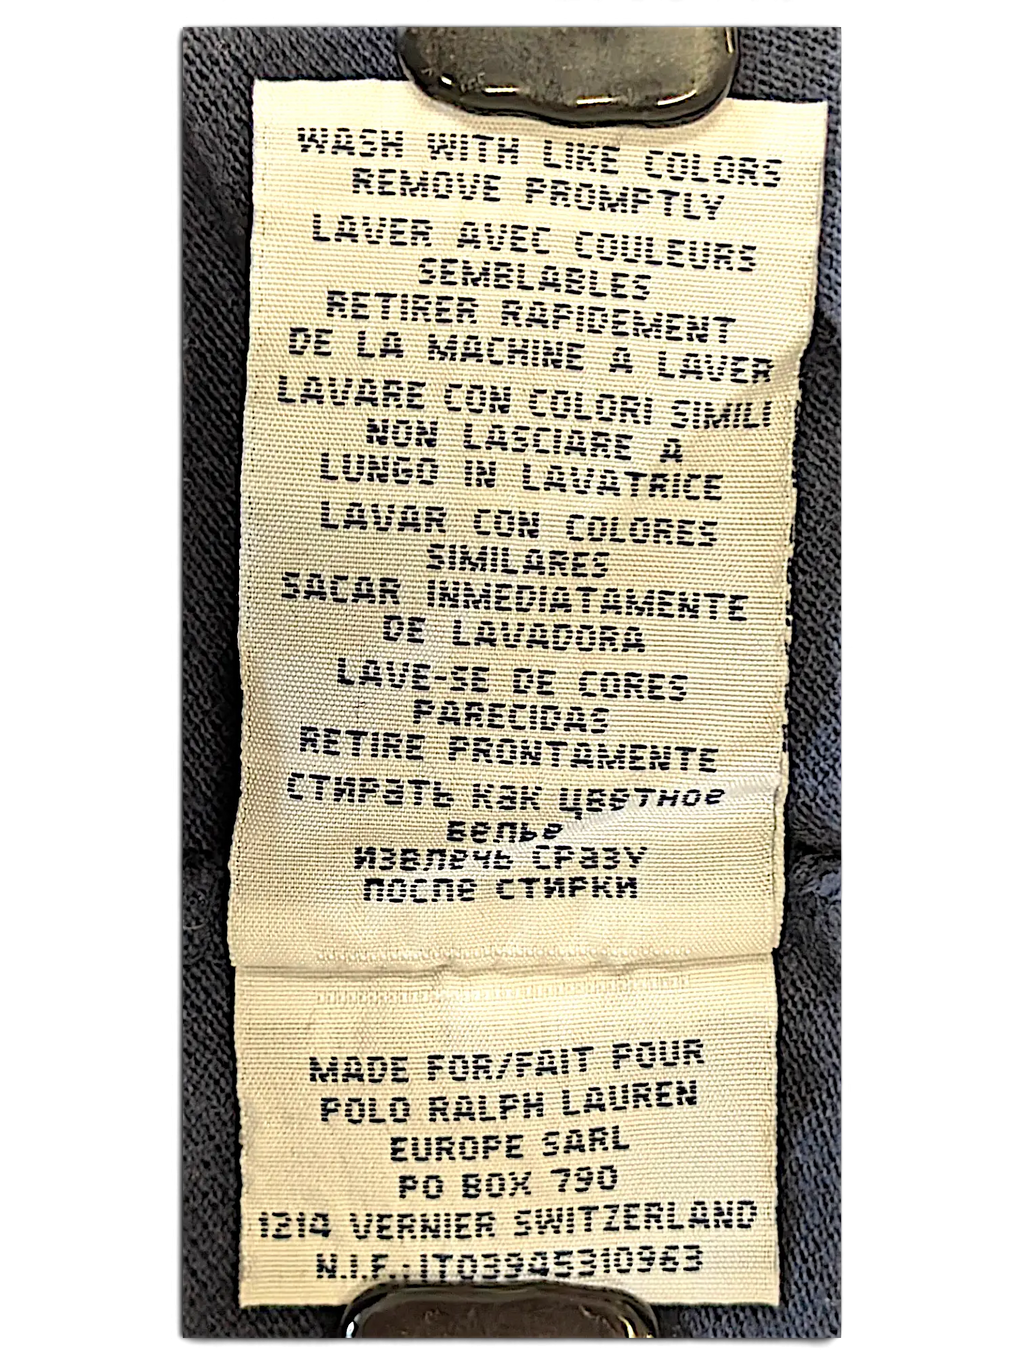 WASH WITH LIKE COLORS
REMOVE PROMPTLY
LAVER AVEC COULEURS
SEMBLABLES
RETIRER RAPIDEMENT
DE LA MACHINE A LAVER
LAVARE CON COLORI SIMILI
NON LASCIARE A
LUNGO IN LAVATRICE
LAVAR CON COLORES
SIMILARES
SACAR INMEDIATAMENTE
DE LAVADORA
LAVE-SE DE CORES
PARECIDAS
RETIRE PRONTAMENTE
СТИРАТЬ КАК ЦВЕТНОЕ
БЕЛЬЕ
ИЗВЛЕЧЬ СРАЗУ
ПОСЛЕ СТИРКИ
MADE FOR/FAIT POUR
POLO RALPH LAUREN
EUROPE SARL
PO BOX 790
1214 VERNIER SWITZERLAND
N.I.F.:IT03945310963